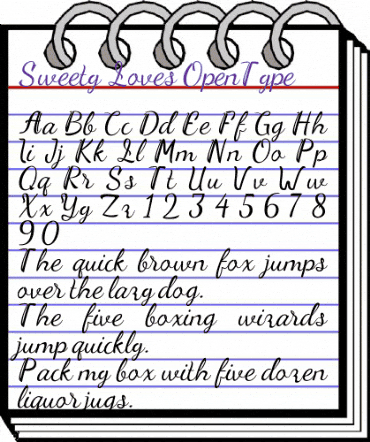 Sweety Loves OpenType
Aa Bb Cc Dd Ee Ff Gg Hh
Ii Jj Kk Ll Mm Nn Oo Pp
Qq Rr Ss Tt Uu Vv Ww
Xx Yy Zz 1 2 3 4 5 6 7 8
9 0
The quick brown fox jumps
over the lazy dog.
The five boxing wizards
jump quickly.
Pack my box with five dozen
liquor jugs.